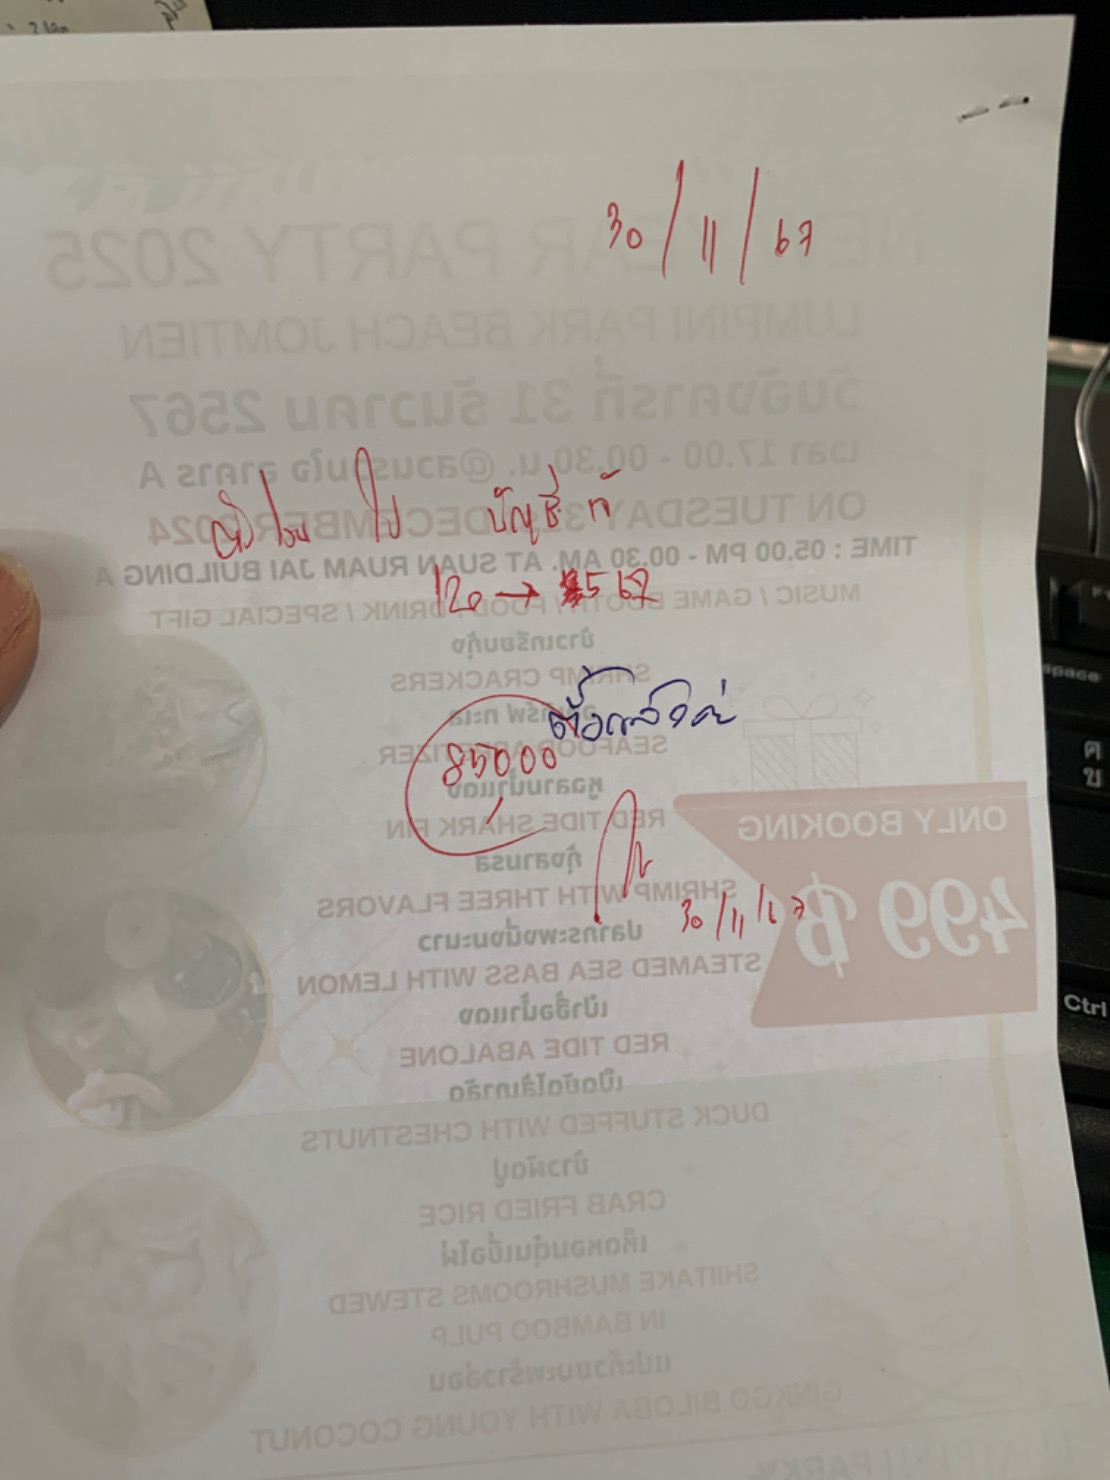 30/11/67
ไป บัญชี
120 → 567
ตั้ง
85,000
30/11/67
NEW YEAR PARTY 2025
LUMPINI PARK BEACH JOMTIEN
วันอังคารที่ 31 ธันวาคม 2567
เวลา 17.00 - 00.30 น. @สวนรวมใจ อาคาร A
ON TUESDAY 31 DECEMBER 2024
TIME : 05.00 PM - 00.30 AM. AT SUAN RUAM JAI BUILDING A
MUSIC / GAME BOOTH / FOOD / DRINK / SPECIAL GIFT
ข้าวเกรียบกุ้ง
SHRIMP CRACKERS
ทะเล
SEAFOOD APPETIZER
หูฉลามน้ำแดง
RED TIDE SHARK FIN
กุ้งสามรส
SHRIMP WITH THREE FLAVORS
ปลากระพงนึ่งมะนาว
STEAMED SEA BASS WITH LEMON
เป๋าฮื้อน้ำแดง
RED TIDE ABALONE
เป็ดยัดไส้เกาลัด
DUCK STUFFED WITH CHESTNUTS
ข้าวผัดปู
CRAB FRIED RICE
เห็ดหอมตุ๋นเยื่อไผ่
SHIITAKE MUSHROOMS STEWED
IN BAMBOO PULP
แปะก๊วยมะพร้าวอ่อน
GINKGO BILOBA WITH YOUNG COCONUT
ONLY BOOKING
499 ฿
LUMPINI PARK
space
ค
ข
Ctrl